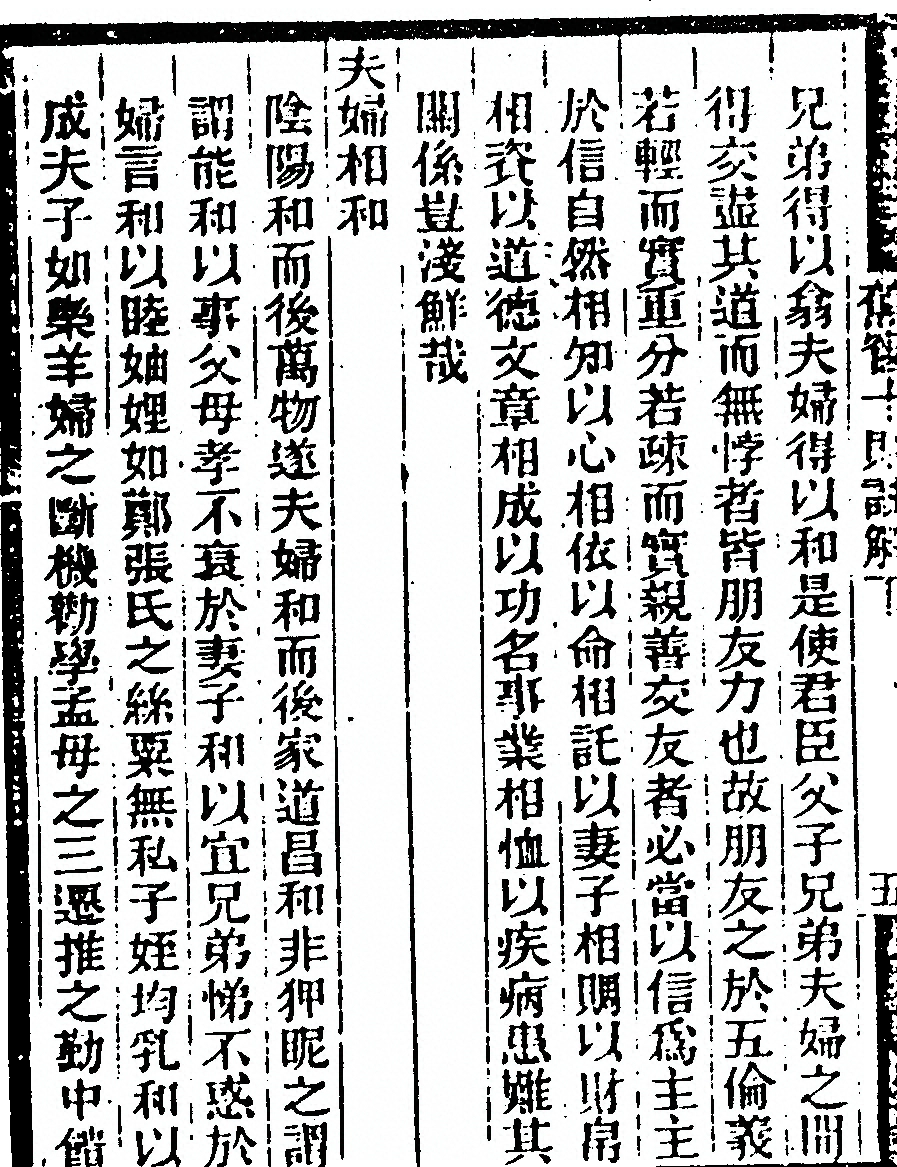 兄弟得以翕夫婦得以和是使君臣父子兄弟夫婦之間
得交盡其道而無悖者皆朋友力也故朋友之於五倫義
若輕而實重分若疎而實親善交友者必當以信爲主主
於信自然相知以心相依以命相託以妻子相賙以財帛
相資以道德文章相成以功名事業相恤以疾病患難其
關係豈淺鮮哉
夫婦相和
陰陽和而後萬物遂夫婦和而後家道昌和非狎昵之謂
謂能和以事父母孝不衰於妻子和以宜兄弟悌不惑於
婦言和以睦妯娌如鄭張氏之絲粟無私子姪均乳和以
成夫子如樂羊婦之斷機勸學孟母之三遷推之勤中饋
舊館十則註解下
五